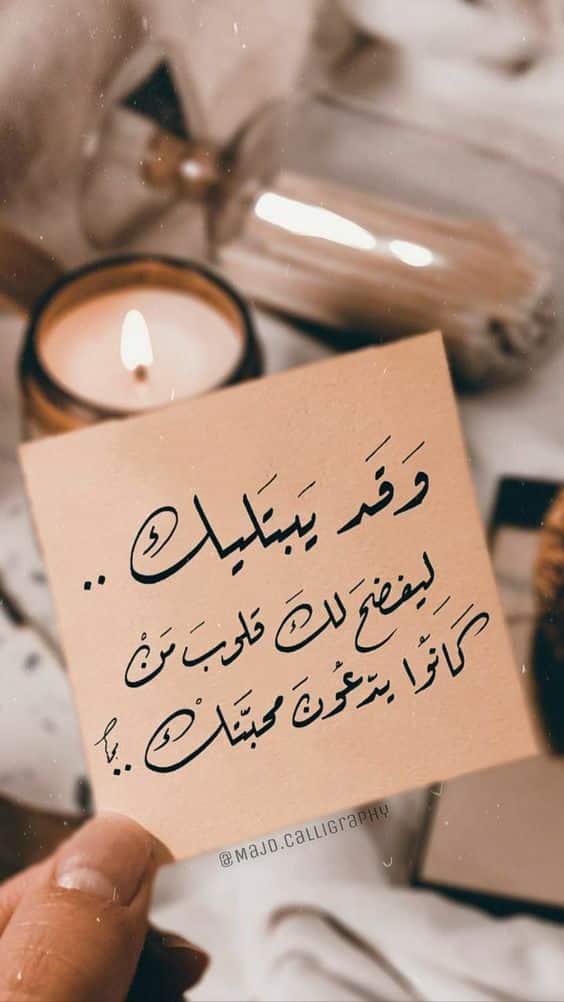 وَقَد يَبتَليك ..
لِيفضحَ لكَ قلوبَ مَنْ
كَانُوا يدّعُونَ محبّتكْ ..
@MAJD.CALLIGRAPHY